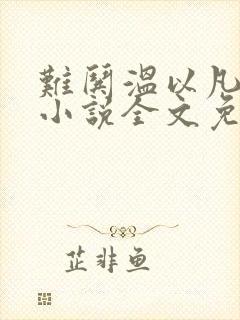 難鬨溫以凡
小說全文免
芷非鱼